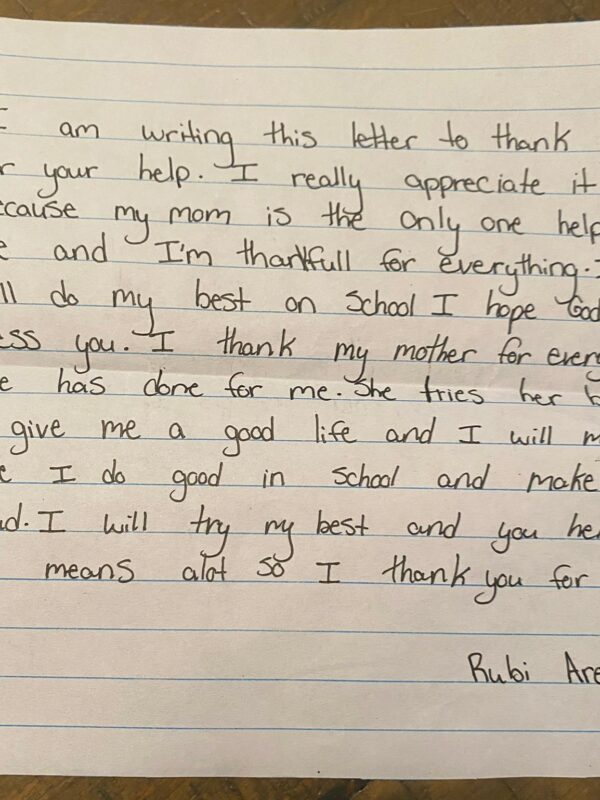 I am writing this letter to thank
r your help. I really appreciate it
cause my mom is the only one help
e and I'm thankfull for everything. I
ll do my best on school I hope God
ess you. I thank my mother for every
e has done for me. She tries her b
give me a good life and I will m
e I do good in school and make
ud. I will try my best and you he
means alot so I thank you for
Rubi Are